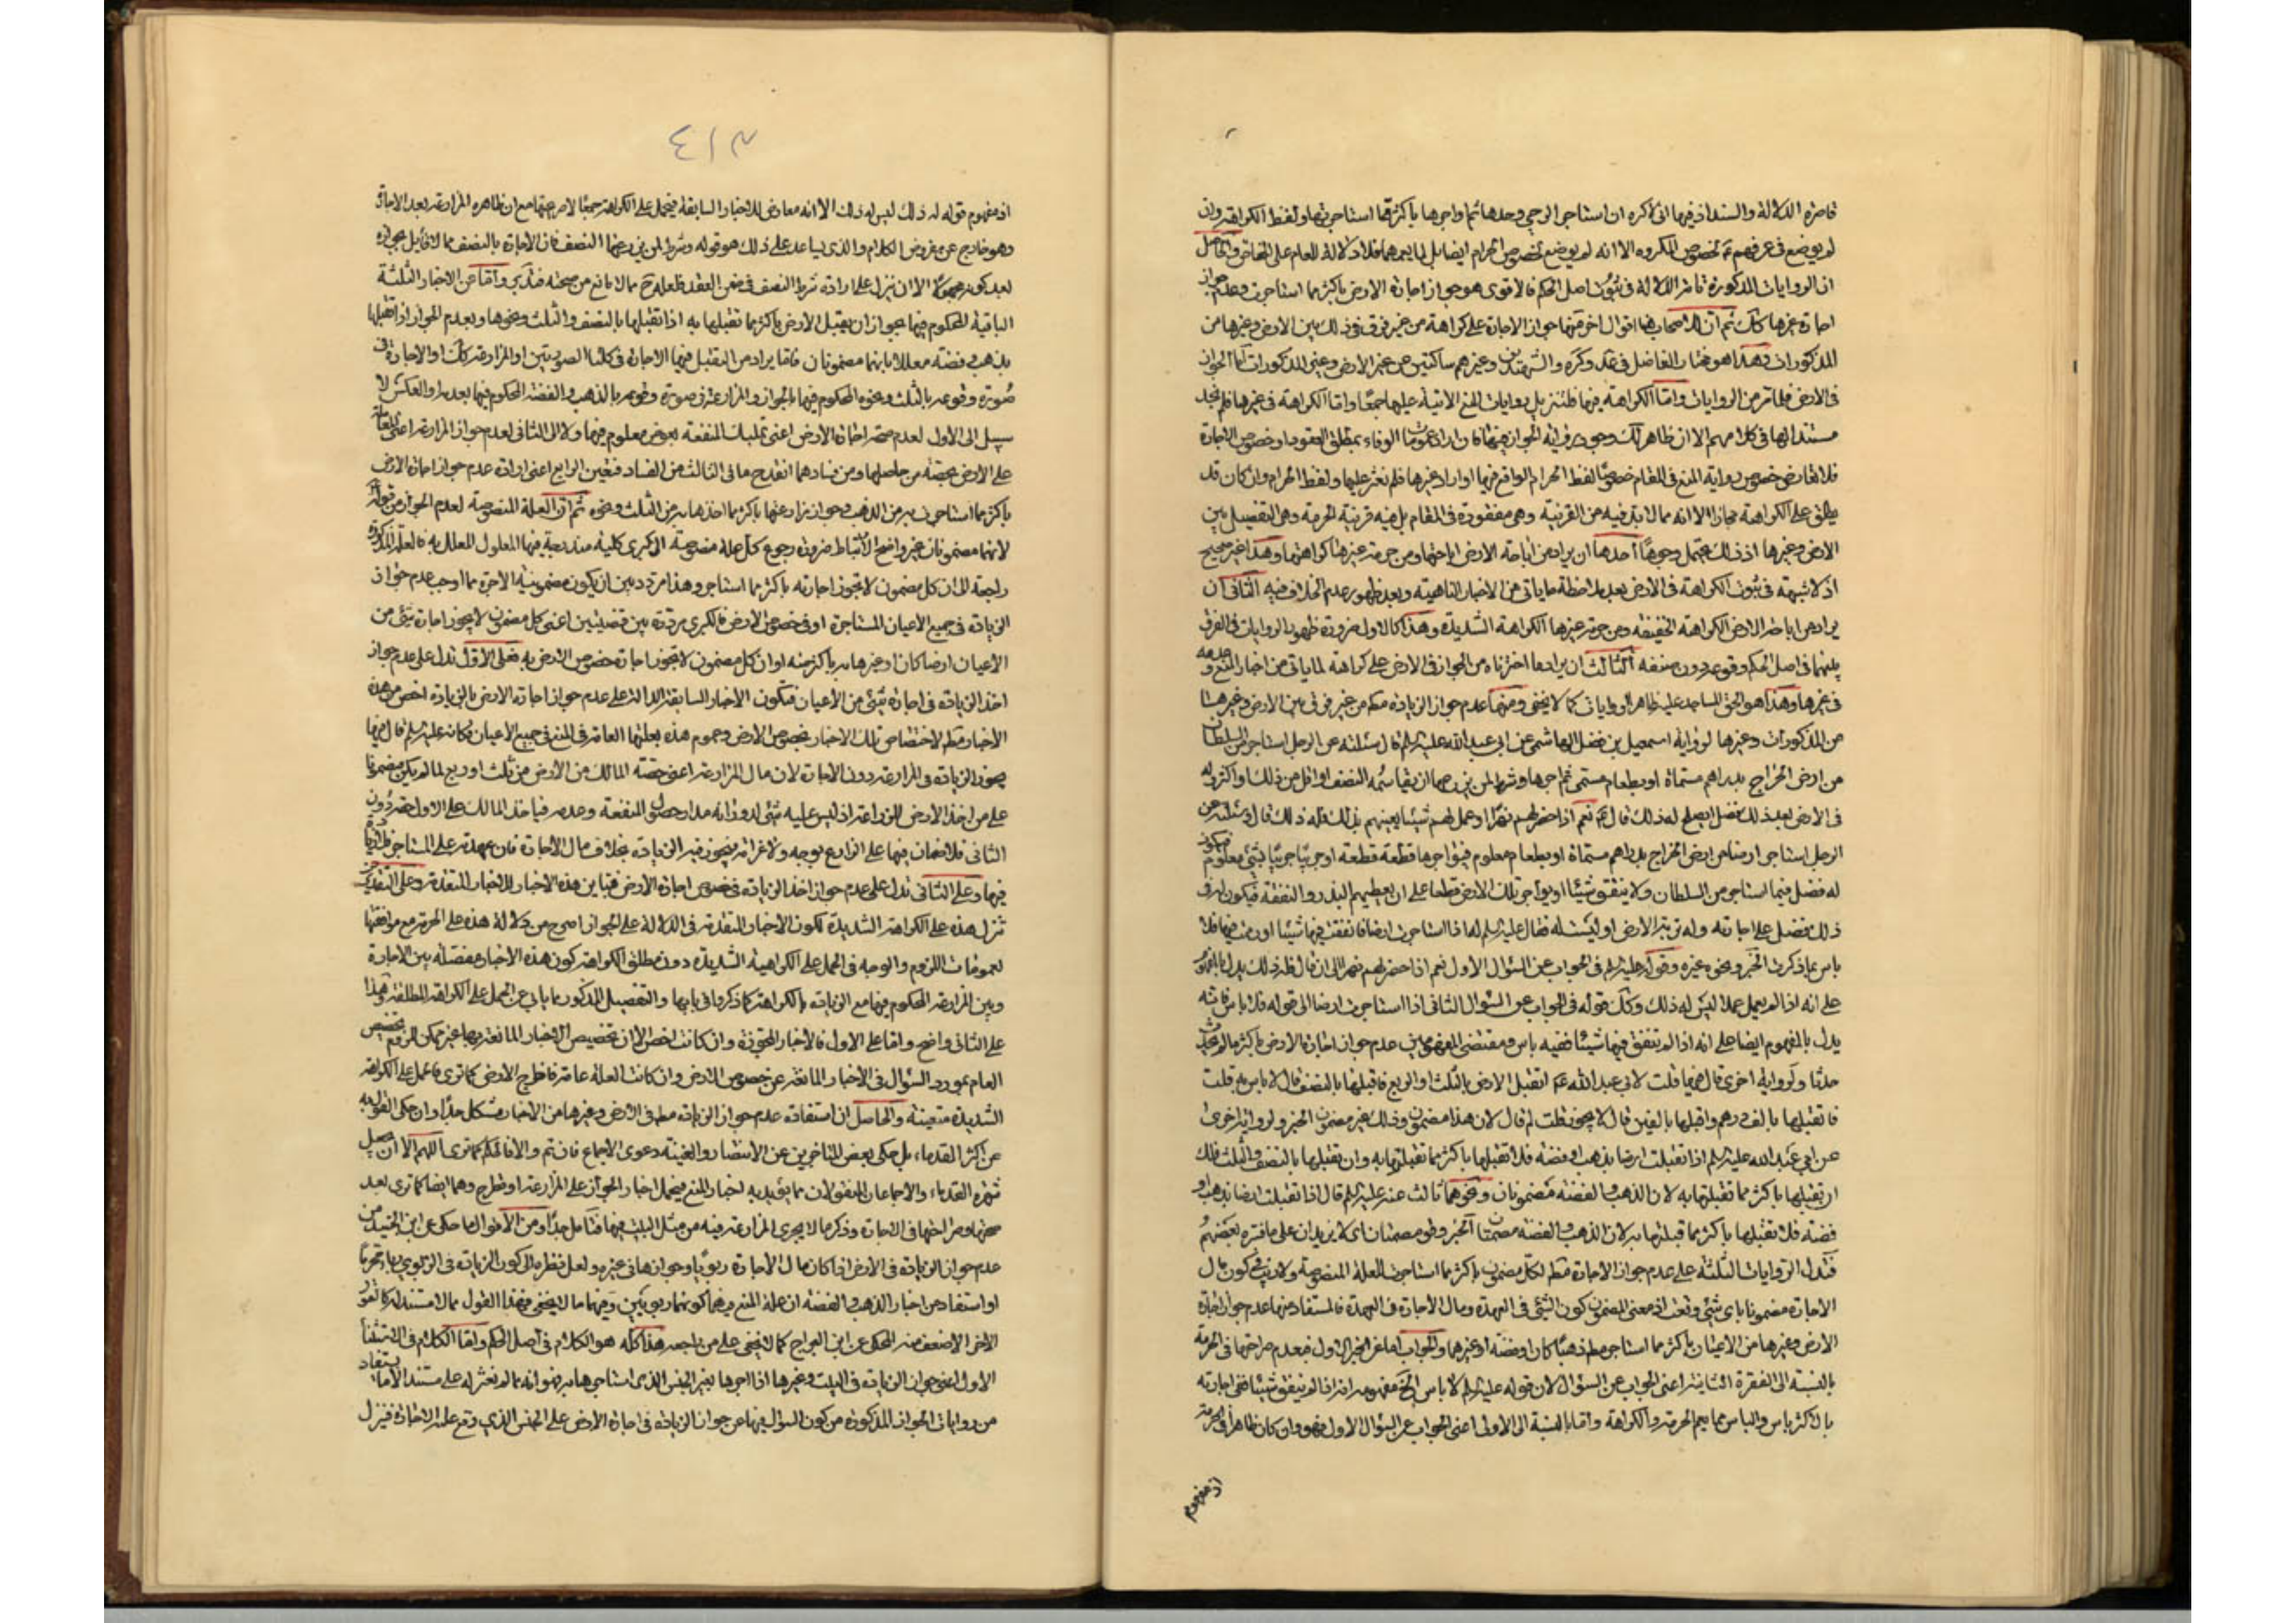 قاصرة الدلالة والسند اذ فيها انى لاكره ان استاجر الرحى وحدها ثم اواجرها باكثر مما استاجرتها ولفظ الكراهة وان
لم يوضع فى عرفهم لخصوص المكروه الا انه لم يوضع لخصوص الحرام ايضا بل لما يعمهما فلا دلالة للعام على الخاص والحاصل
ان الروايات المذكورة الدلالة فى ثبوت اصل الحكم فالاقوى هو جواز اجارة الارض باكثر مما استاجرت وعدم جواز
اجارة غيرها كذلك ثم ان للاصحاب هنا اقوال اخر منها جواز الاجارة على كراهة من غير فرق فى ذلك بين الارض وغيرها من
المذكورات وهذا هو مختار الفاضل فى وكره والشهيدين وغيرهم ساكتين عن غير الارض وغير المذكورات اما الجواز
فى الارض فلما مر من الروايات واما الكراهة فيها فلتنزيل روايات المنع الاتية عليها جمعا واما الكراهة فى غيرها فلم نجد
مستندا لها فى كلامهم الا ان ظاهر لك وجود رواية الجواز فيها فان اراد عمومات الوفاء بمطلق العقود او خصوص الاجارة
فلا تعارض خصوص رواية المنع فى المقام خصوصا لفظ الحرام الواقع فيها او اراد غيرها فلم نعثر عليها ولفظ الحرام وان كان قد
يطلق على الكراهة مجازا الا انه مما لا بد فيه من القرينة وهى مفقودة فى المقام بل فيه قرينة الحرمة وهى التفصيل بين
الارض وغيرها اذ ذلك يحتمل وجوها احدها ان يراد من اباحة الارض اباحتها ومن حرمة غيرها كراهتها وهذا غير صحيح
اذ لا شبهة فى ثبوت الكراهة فى الارض بعد ملاحظة ما ياتى من الاخبار الناهية وبعد ظهور عدم الخلاف فيه الثانى ان
يراد من اباحة الارض الكراهة الخفيفة ومن حرمة غيرها الكراهة الشديدة وهذا كالاول ضرورة ظهور الروايات فى الفرق
بينهما فى اصل الحكم وقوعه دون صنفه الثالث ان يراد ما اخترناه من الجواز فى الارض على كراهة لما ياتى من اخبار المنع وعدمه
فى غيرها وهذا هو الحق المساعد عليه ظاهر الروايات كما لا يخفى ومنها عدم جواز الزيادة مطلقا من غير فرق بين الارض وغيرها
من المذكورات وغيرها لرواية اسمعيل بن فضل الهاشمى عن ابى عبد الله عليه السلم قال سئلته عن الرجل استاجر من السلطان
من ارض الخراج بدراهم مسماة او بطعام مسمى ثم اجرها وشرط لمن يزرعها ان يقاسمه النصف او اقل من ذلك او اكثر وله
فى الارض بعد ذلك فضل ايصلح له ذلك قال نعم اذا حفر لهم نهرا او عمل لهم شيئا يعينهم بذلك فله ذلك قال وسئلته عن
الرجل استاجر ارضا من ارض الخراج بدراهم مسماة او بطعام معلوم فيؤاجرها قطعة قطعة او جريبا جريبا بشئ معلوم فيكون
له فضل فيما استاجر من السلطان ولا ينفق شيئا او يؤاجر تلك الارض قطعا على ان يعطيهم البذر والنفقة فيكون له فى
ذلك فضل على اجارته وله تربة الارض او ليست له فقال عليه السلم له اذا استاجرت ارضا فانفقت فيها شيئا او رممت فيها فلا
باس بما ذكرت الخبر ونحوه غيره وقوله عليه السلم فى الجواب عن السؤال الاول نعم اذا حفر لهم نهرا الى ان قال فله ذلك يدل بالمفهوم
على انه اذا لم يعمل عملا ليس له ذلك وكذا قوله فى الجواب عن السؤال الثانى اذا استاجرت ارضا الى قوله فلا باس فانه
يدل بالمفهوم ايضا على انه اذا لم تنفق فيها شيئا ففيه باس ومقتضى المفهومين عدم جواز اجارة الارض باكثر ما لم يحدث
حدثا ولرواية اخرى قال فيها قلت لابى عبد الله اتقبل الارض بالثلث او الربع فاقبلها بالنصف قال لا باس به قلت
فاتقبلها بالف درهم واقبلها بالفين قال لا يجوز قلت لم قال لان هذا مضمون وذلك غير مضمون الخبر ولرواية اخرى
عن ابى عبد الله عليه السلم اذا تقبلت ارضا بذهب او فضة فلا تقبلها باكثر مما تقبلتها به وان تقبلتها بالنصف والثلث فلك
ان تقبلها باكثر مما تقبلتها به لان الذهب والفضة مضمونان ونحوهما ثالث عنه عليه السلم قال اذا تقبلت ارضا بذهب او
فضة فلا تقبلها باكثر مما قبلتها به لان الذهب والفضة الخبر وهو مصمتان اى لا يزيدان على ما فسره بعضهم
فتدل الروايات الثلثة على عدم جواز الاجارة مطلقا لكل مضمون باكثر مما استاجرت للعلة المنصوصة ولا ريب فى كون مال
الاجارة مضمونا باى شئ وقعت اذ معنى المضمون كون الشئ فى العهدة ومال الاجارة فى العهدة فالمستفاد منها عدم جواز اجارة
الارض وغيرها من الاعيان باكثر مما استاجر مطلقا ذهبا كان او فضة او غيرهما والجواب اما عن الخبر الاول فبعدم صراحتها فى الحرمة
بالنسبة الى الفقرة الثانية اعنى الجواب عن السؤال لان قوله عليه السلم لا باس الخ مفهومه انه اذا لم ينفق شيئا ففى اجارته
بالاكثر باس والباس مما يعم الحرمة والكراهة واما بالنسبة الى الاولى اعنى الجواب عن السؤال الاول فهو وان كان ظاهرا فى الحرمة
اذ مفهوم
٤١٣
اذ مفهوم قوله له ذلك ليس له ذلك الا انه معارض للاخبار السابقة فيحمل على الكراهة جمعا لامر عنها مع ان ظاهره المزارعة بعد الاجارة
وهو خارج عن مفروض الكلام والذى يساعد على ذلك هو قوله وشرط لمن يزرعها النصف فان الاجارة بالنصف مما لا قايل بجوازه
لعد كونه مجهولا الا ان ينزل على ارادة شرط النصف فى ضمن العقد فلعله ح مما لا مانع من صحته فتدبر واما عن الاخبار الثلثة
الباقية المحكوم فيها بجواز ان يقبل الارض باكثر مما تقبلها به اذا تقبلها بالنصف والثلث ونحوها وبعدم الجواز اذا تقبلها
بذهب وفضة معللا بانهما مضمونان فاما يراد من التقبل فيها الاجارة فى كلتا الصورتين او المزارعة كذلك او الاجارة فى
صورة وقوعه بالثلث ونحوه المحكوم فيها بالجواز والمزارعة فى صورة وقوعه بالذهب والفضة المحكوم فيها بعدمه او العكس لا
سبيل الى الاول لعدم صحة اجارة الارض اعنى تمليك المنفعة بعوض معلوم فيها ولا الى الثانى لعدم جواز المزارعة اعنى المعاملة
على الارض بحصة من حاصلها ومن فسادهما انقدح ما فى الثالث من الفساد فتعين الرابع اعنى ارادة عدم جواز اجارة الارض
باكثر مما استاجرت به من الذهب وجواز مزارعتها باكثر مما اخذها به من الثلث ونحوه ثم ان العلة المنصوصة لعدم الجواز من قوله
لانهما مضمونان غير واضح الانتباط ضرورة رجوع كل علة منصوصة الى كبرى كلية مندرجة فيها المعلول المعلل به فالعلة المذكورة
راجعة الى ان كل مضمون لا تجوز اجارته باكثر مما استاجر وهذا مردد بين ان يكون مضمونية الاجرة مما اوجب عدم جواز
الزيادة فى جميع الاعيان المستاجرة او فى خصوص الارض فالكبرى مرددة بين قضيتين اعنى كل مضمون لا يجوز اجارة شئ من
الاعيان ارضا كان او غيرها به باكثر منه او ان كل مضمون لا تجوز اجارة خصوص الارض به فعلى الاول تدل على عدم جواز
اخذ الزيادة فى اجارة شئ من الاعيان فتكون الاخبار السابقة الدالة على عدم جواز اجارة الارض بالزيادة اخص من هذه
الاخبار مطلقا لاختصاص تلك الاخبار بخصوص الارض وعموم هذه بعلتها العامة فى المنع فى جميع الاعيان فكانه عليه السلم قال فيها
يجوز الزيادة فى المزارعة دون الاجارة لان مال المزارعة اعنى حصة المالك من الارض من ثلث او ربع لما لم يكن مضمونا
على من اخذ الارض للزراعة اذ ليس عليه شئ لدورانه مدار حصول المنفعة وعدمه فياخذ المالك على الاول حصته دون
الثانى فلا ضمان فيها على الزارع بوجه ولا غرامة فيجوز فيه الزيادة بخلاف مال الاجارة فان عهدته على المستاجر
فيها وعلى الثانى تدل على عدم جواز اخذ الزيادة فى خصوص اجارة الارض فتباين هذه الاخبار للاخبار المتقدمة وعلى التقديرين
تنزل هذه على الكراهة الشديدة لكون الاخبار المتقدمة فى الدلالة على الجواز اصرح من دلالة هذه على الحرمة مع موافقتها
لعمومات اللزوم والوجه فى الحمل على الكراهة الشديدة دون مطلق الكراهة كون هذه الاخبار مفصلة بين الاجارة
وبين المزارعة المحكوم فيها مع الزيادة بالكراهة كما ذكروا فى بابها والتفصيل المذكور مما يابى عن الحمل على الكراهة المطلقة وهذا
على الثانى واضح واما على الاول فالاخبار المجوزة وان كانت اخص الا ان تخصيص الاخبار المانعة بها غير ممكن للزوم تخصيص
العام بمورد السؤال فى الاخبار المانعة عن خصوص الارض وان كانت العلة عامة فاخراج الارض كما ترى فالحمل على الكراهة
الشديدة متعينة والحاصل ان استفادة عدم جواز الزيادة مطلقا فى الارض وغيرها من الاخبار مشكل جدا وان حكى القول به
عن اكثر القدماء بل حكى بعض المتاخرين عن الانتصار والغنية دعوى الاجماع فان تم والا فالحكم كما ترى اللهم الا ان يحصل
شهرة القدماء والاجماعان المنقولان مما يؤيد به اخبار المنع فيحمل اخبار الجواز على المزارعة او تطرح وهما ايضا كما ترى بعد
صحتها وصراحتها فى الاجارة وذكر ما لا يجرى المزارعة فيه من مثل البيت فيها فتامل جدا ومن الاقوال ما حكى عن ابن الجنيد من
عدم جواز الزيادة فى الارض اذا كان مال الاجارة ربويا وجوازها فى غيره ولعل نظره الى كون الزيادة فى الربوى ربا محرما
او استفاد من اخبار الذهب والفضة ان علة المنع فيهما كونهما ربويين وفيهما ما لا يخفى فهذا القول مما لا مستند له كالقول
الاخر الاضعف منه المحكى عن ابن البراج كما لا يخفى على من راجعه هذا كله هو الكلام فى اصل الحكم واما الكلام فى الاستثناء
الاول اعنى جواز الزيادة فى البيت وغيرها اذا اجرها بغير الجنس الذى استاجرها به فهو انه مما لم نعثر له على مستند الا ما يستفاد
من روايات الجواز المذكورة من كون السؤال فيها عن جواز الزيادة فى اجارة الارض على الجنس الذى وقع عليه الاجارة فينزل